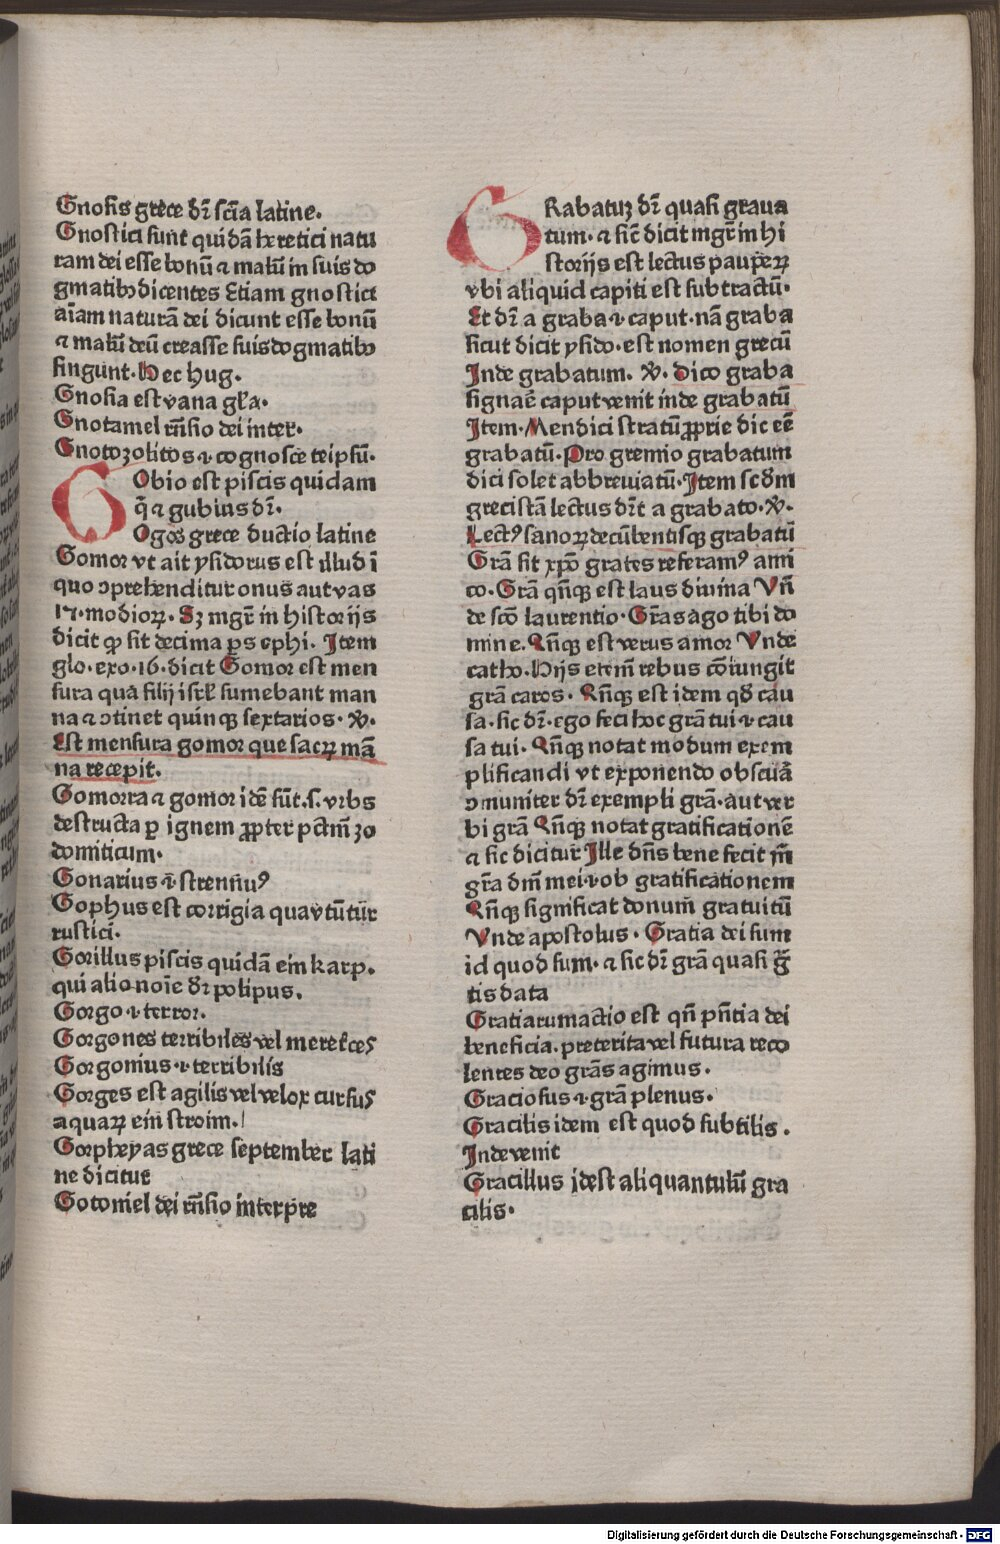 Gnosis grece dr̄ scīa latine.
Gnostici sunt quidā heretici natu
ram dei esse bonū ⁊ malū in suis do
gmatibꝫ dicentes Etiam gnostici
aīam naturā dei dicunt esse bonū
⁊ malū deū creasse suis dogmatibꝫ
fingunt. Hec hug.
Gnosia est vana gl̄a.
Gnotamel rn̄sio dei inter.
Gnotozolitos .i. cognosce teipsū.
GObio est piscis quidam
q̄ ⁊ gubius dr̄.
Ogos grece ductio latine
Gomor vt ait ysidorus est illud ī
quo ꝯprehenditur onus aut vas
17. modioꝝ. Sꝫ mgr̄ in historijs
dicit ꝙ sit decima ꝑs ephi. Item
glo. exo. 16. dicit Gomor est men
sura qua filij isrl̄ sumebant man
na ⁊ ꝯtinet quinqꝫ sextarios. ꝟ.
Est mensura gomor que sacꝝ mā
na recepit.
Gomorra ⁊ gomor idē sūt .s. vrbs
destructa ꝑ ignem ꝓpter pctm̄ zo
domiticum.
Gonarius .i. strennuꝰ
Gophus est corrigia qua vtūtur̄
rustici.
Gorillus piscis quidā ein karp.
qui alio noīe dr̄ polipus.
Gorgo .i. terror.
Gorgones terribiles vel meretces
Gorgonius .i. terribilis
Gorges est agilis vel velox cursus
aquaꝝ ein stroim.
Gorpheyas grece september lati
ne dicitur
Gotoniel dei rn̄sio interpre
GRabatuꝫ dr̄ quasi graua
tum. ⁊ sic̄ dicit mgr̄ in hi
storijs est lectus pauꝑeꝝ
vbi aliquid capiti est subtractū.
Et dr̄ a graba .i. caput. nā graba
sicut dicit ysido. est nomen grecū
Inde grabatum. ꝟ. Dico graba
signaē caput venit inde grabatū
Item. Mendici stratū ꝓprie dic eē
grabatū. Pro gremio grabatum
dici solet abbreuiatū. Item scdm̄
grecistā lectus dr̄t a grabato. ꝟ.
Lectꝰ sanoꝝ decūbentisqꝫ grabatū
Grā sit xp̄o grates referamꝰ ami
co. Grā qn̄qꝫ est laus diuina Vn̄
de scō laurentio. Grās ago tibi do
mine. Qn̄qꝫ est verus amor Vnde
catho. Hijs etem̄ rebus cōiungit
grā caros. Qn̄qꝫ est idem qd̄ cau
sa. sic dr̄. ego feci hoc grā tui .i. cau
sa tui. Qn̄qꝫ notat modum exem
plificandi vt exponendo obscurā
ꝯmuniter dr̄ exempli grā. aut ver
bi grā Qn̄qꝫ notat gratificationē
⁊ sic dicitur̄ Ille dn̄s bene fecit m̄
gr̄a dm̄ mei .i. ob gratificationem
Qn̄qꝫ significat donum̄ gratuitū
Vnde apostolus. Gratia dei sum
id quod sum. ⁊ sic dr̄ grā quasi gͣ
tis data
Gratiarumactio est qn̄ pn̄tia dei
beneficia. preterita vel futura reco
lentes deo grās agimus.
Graciosus .i. grā plenus.
Gracilis idem est quod subtilis.
Inde venit
Gracillus idest aliquantulū gra
cilis.
Digitalisierung gefördert durch die Deutsche Forschungsgemeinschaft - DFG